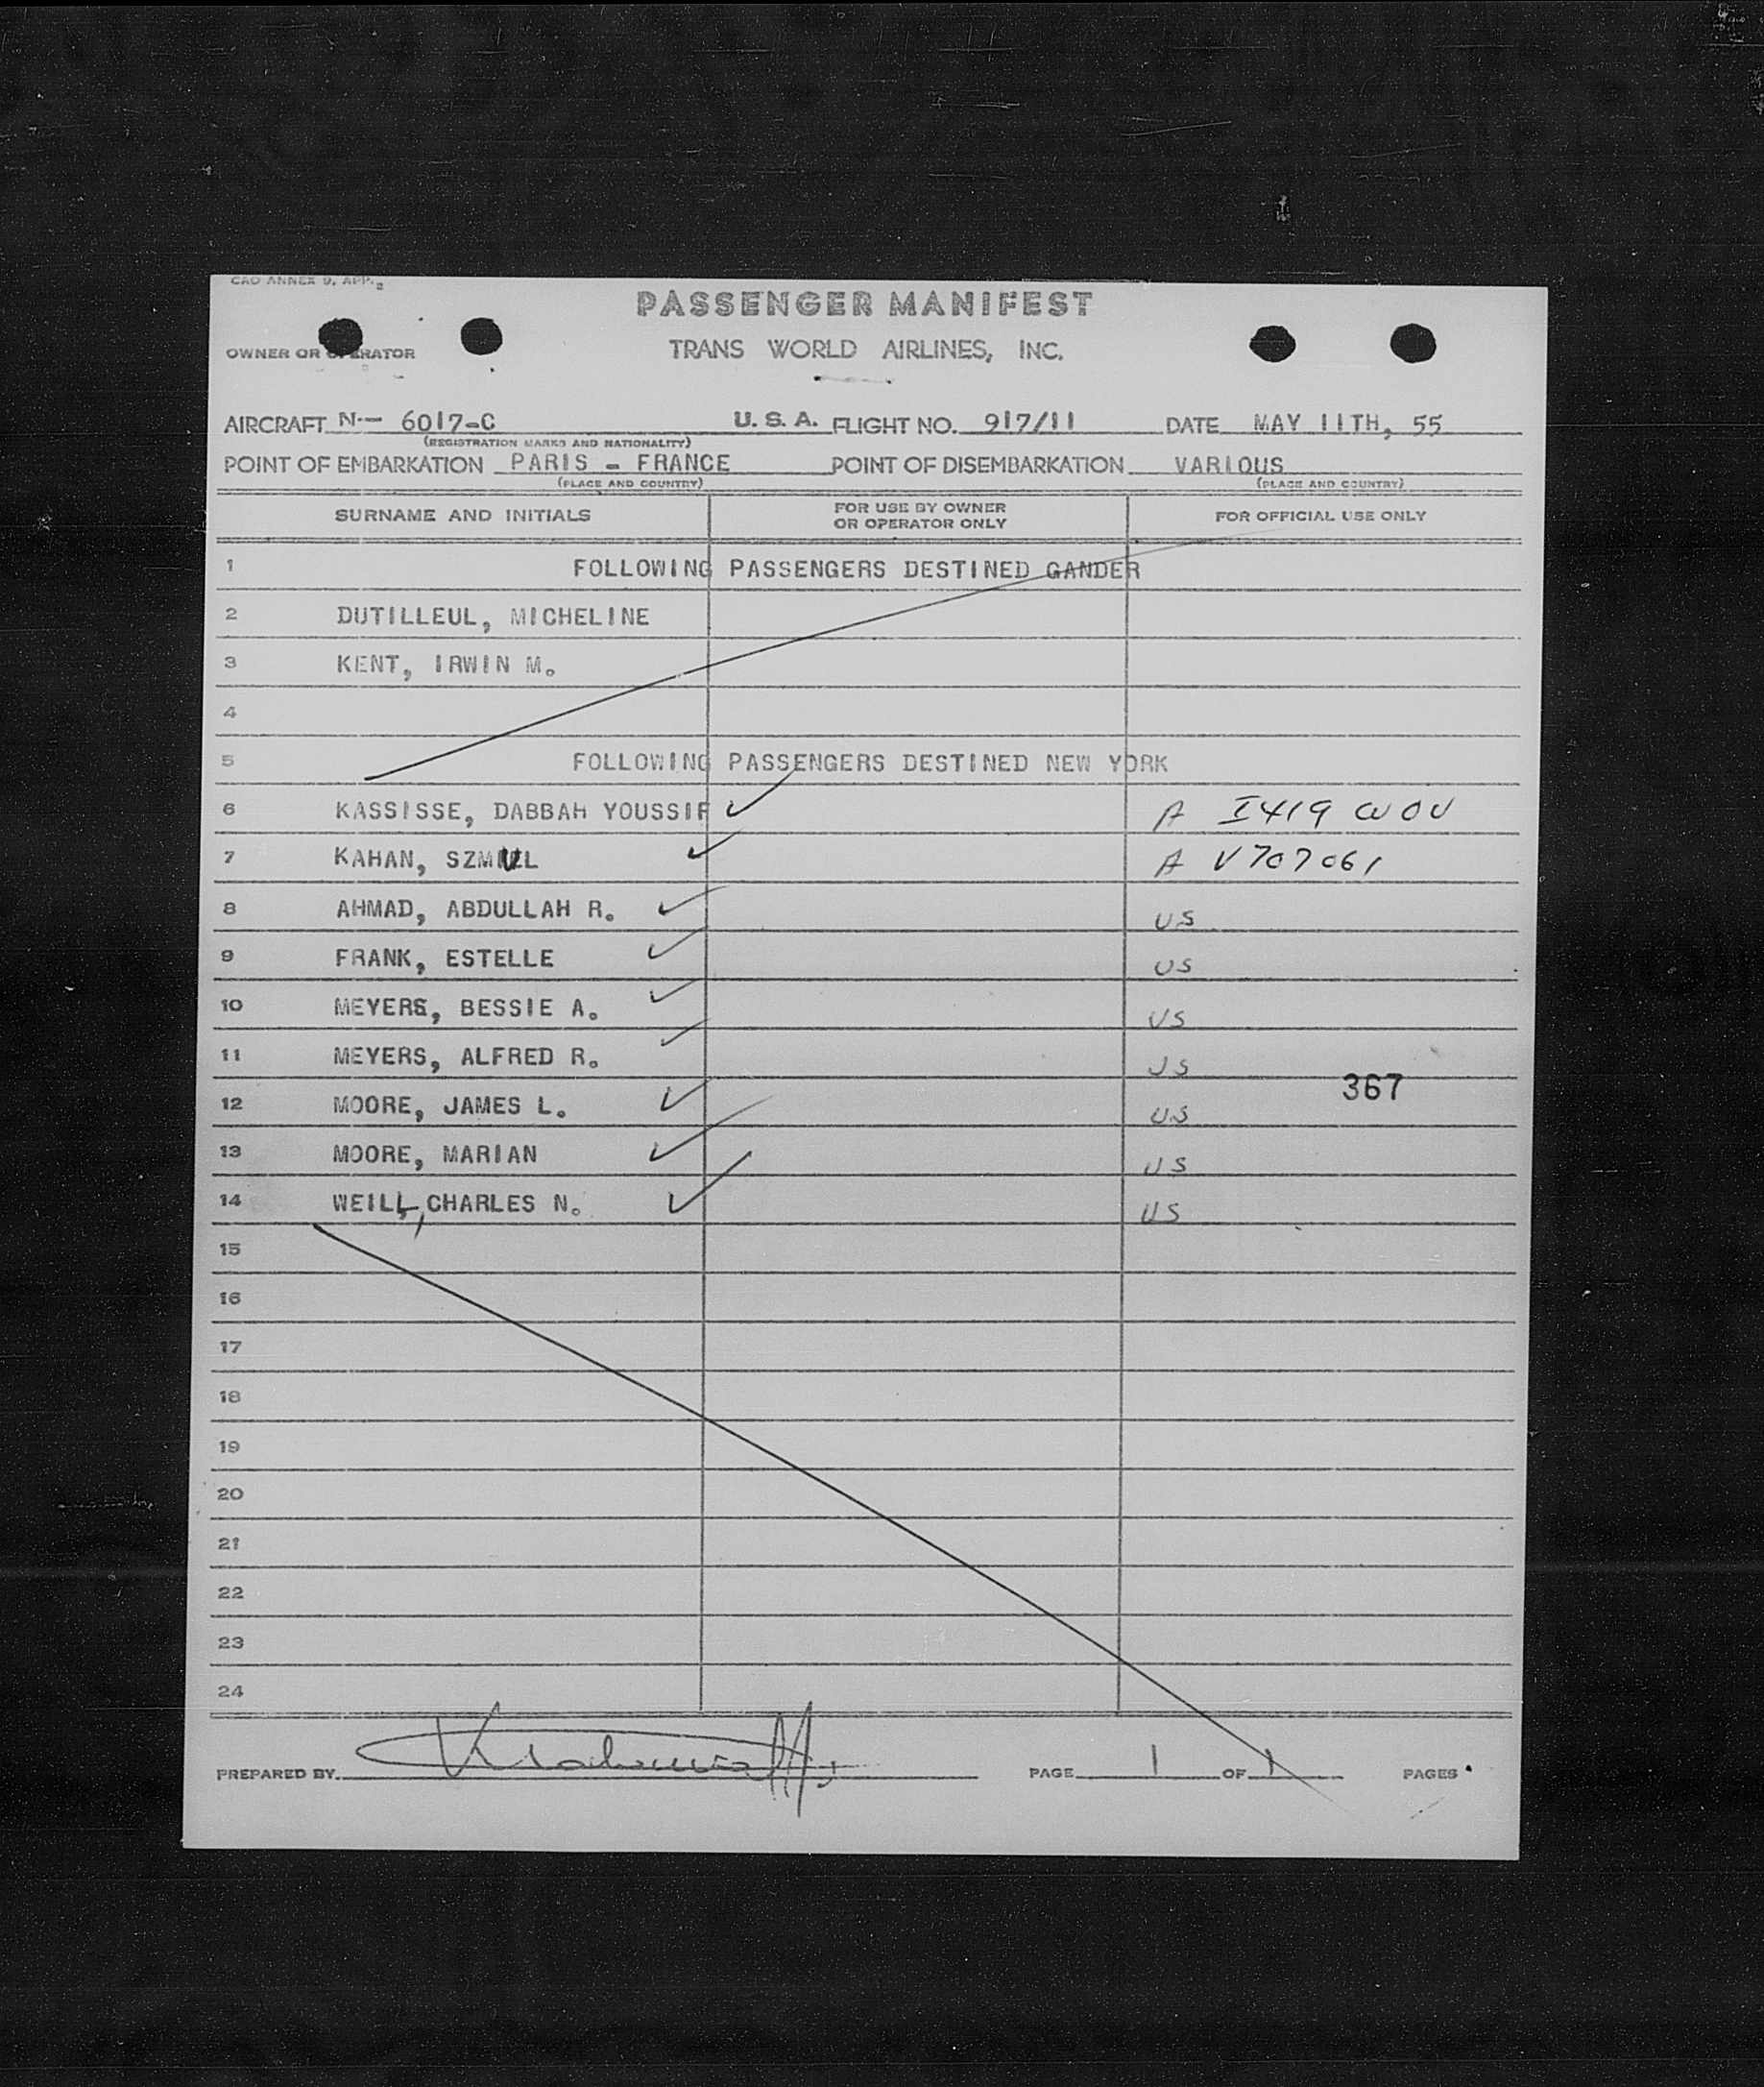 CAO ANNEX 9, APP. 2
PASSENGER MANIFEST
OWNER OR OPERATOR TRANS WORLD AIRLINES, INC.
AIRCRAFT N-- 6017-C U. S. A. FLIGHT NO. 917/11 DATE MAY 11TH, 55
(REGISTRATION MARKS AND NATIONALITY)
POINT OF EMBARKATION PARIS - FRANCE POINT OF DISEMBARKATION VARIOUS
(PLACE AND COUNTRY) (PLACE AND COUNTRY)
SURNAME AND INITIALS FOR USE BY OWNER OR OPERATOR ONLY FOR OFFICIAL USE ONLY
1 FOLLOWING PASSENGERS DESTINED GANDER
2 DUTILLEUL, MICHELINE
3 KENT, IRWIN M.
4
5 FOLLOWING PASSENGERS DESTINED NEW YORK
6 KASSISSE, DABBAH YOUSSIF ✓ A I419 WOV
7 KAHAN, SZMUL ✓ A V707061
8 AHMAD, ABDULLAH R. ✓ US
9 FRANK, ESTELLE ✓ US
10 MEYERS, BESSIE A. ✓ US
11 MEYERS, ALFRED R. ✓ US
367
12 MOORE, JAMES L. ✓ US
13 MOORE, MARIAN ✓ US
14 WEILL, CHARLES N. ✓ US
15
16
17
18
19
20
21
22
23
24
PREPARED BY PAGE 1 OF 1 PAGES